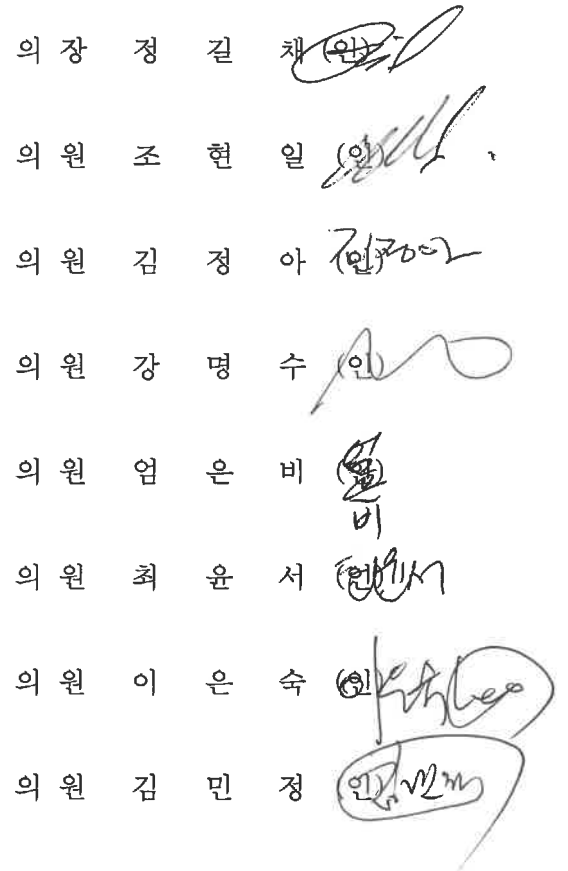 의장 정 길 채 (인)
의원 조 현 일 (인)
의원 김 정 아 (인)
의원 강 명 수 (인)
의원 엄 은 비 (인)
의원 최 윤 서 (인)
의원 이 은 숙 (인)
의원 김 민 정 (인)